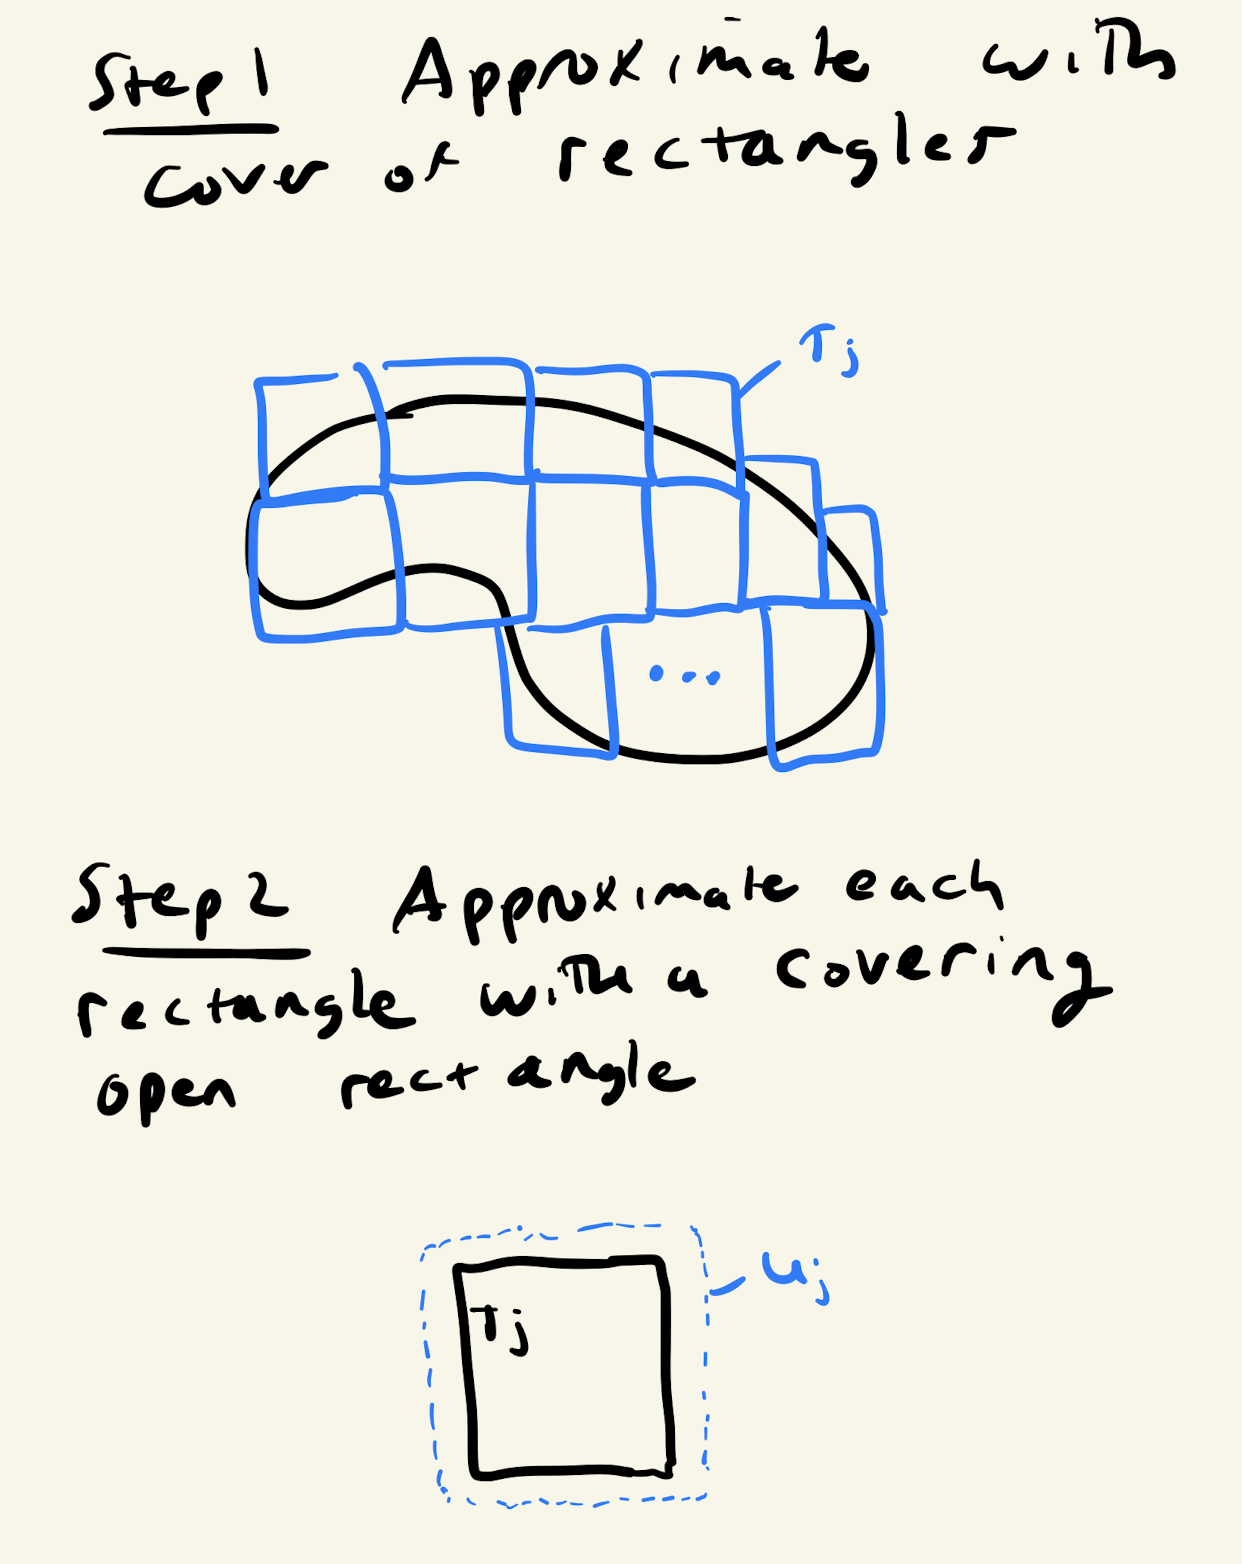 Step 1 Approximate with
cover of rectangles
Tj
...
Step 2 Approximate each
rectangle with a covering
open rectangle
Uj
Tj